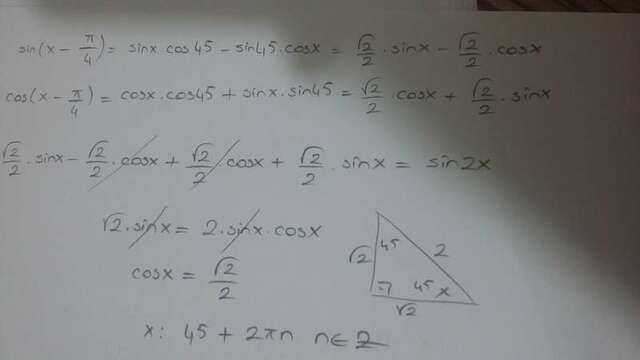 sin(x - π/4) = sinx.cos45 - sin45.cosx = √2/2 . sinx - √2/2 . cosx
cos(x - π/4) = cosx.cos45 + sinx.sin45 = √2/2 . cosx + √2/2 . sinx
√2/2 . sinx - √2/2 . cosx + √2/2 cosx + √2/2 . sinx = sin2x
√2.sinx = 2.sinx.cosx
cosx = √2/2
45
2
√2
45 x
√2
x: 45 + 2πn n∈Z